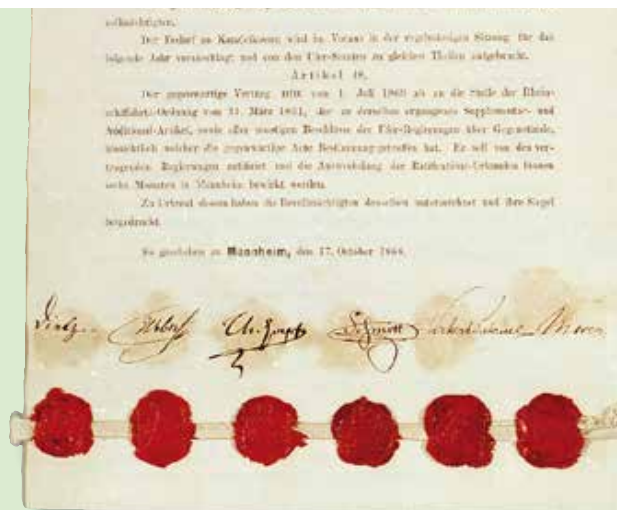 vollmächtigten.
Der Bedarf an Kanzleikosten wird im Voraus in der regelmässigen Sitzung für das
folgende Jahr veranschlagt und von den Ufer-Staaten zu gleichen Theilen aufgebracht.
Artikel 48.
Der gegenwärtige Vertrag tritt vom 1. Juli 1869 ab an die Stelle der Rhein-
schiffahrts-Ordnung vom 31. März 1831, der zu derselben ergangenen Supplementar- und
Additional-Artikel, sowie aller sonstigen Beschlüsse der Ufer-Regierungen über Gegenstände,
hinsichtlich welcher die gegenwärtige Acte Bestimmung getroffen hat. Er soll von den ver-
tragenden Regierungen ratificirt und die Auswechslung der Ratifications-Urkunden binnen
sechs Monaten in Mannheim bewirkt werden.
Zu Urkund dessen haben die Bevollmächtigten denselben unterzeichnet und ihre Siegel
beigedruckt.
So geschehen zu Mannheim, den 17. October 1868.
Dietz. Weber Schmitt